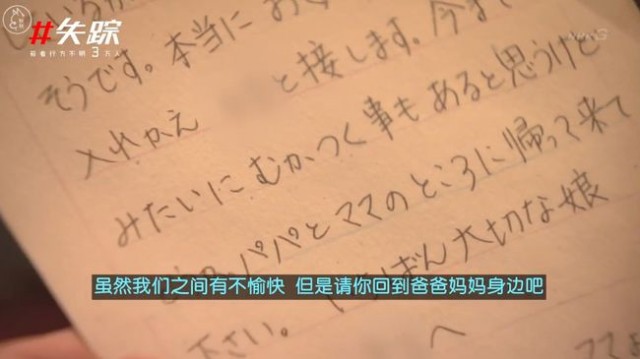 #失踪
若者行方不明3万人
そうです。本当にお
入れかえ と接します。今ま
みたいにむかつく事もあると思うけど
パパとママのところに帰って来て
下さい。 ばん大切な娘
へ
虽然我们之间有不愉快 但是请你回到爸爸妈妈身边吧